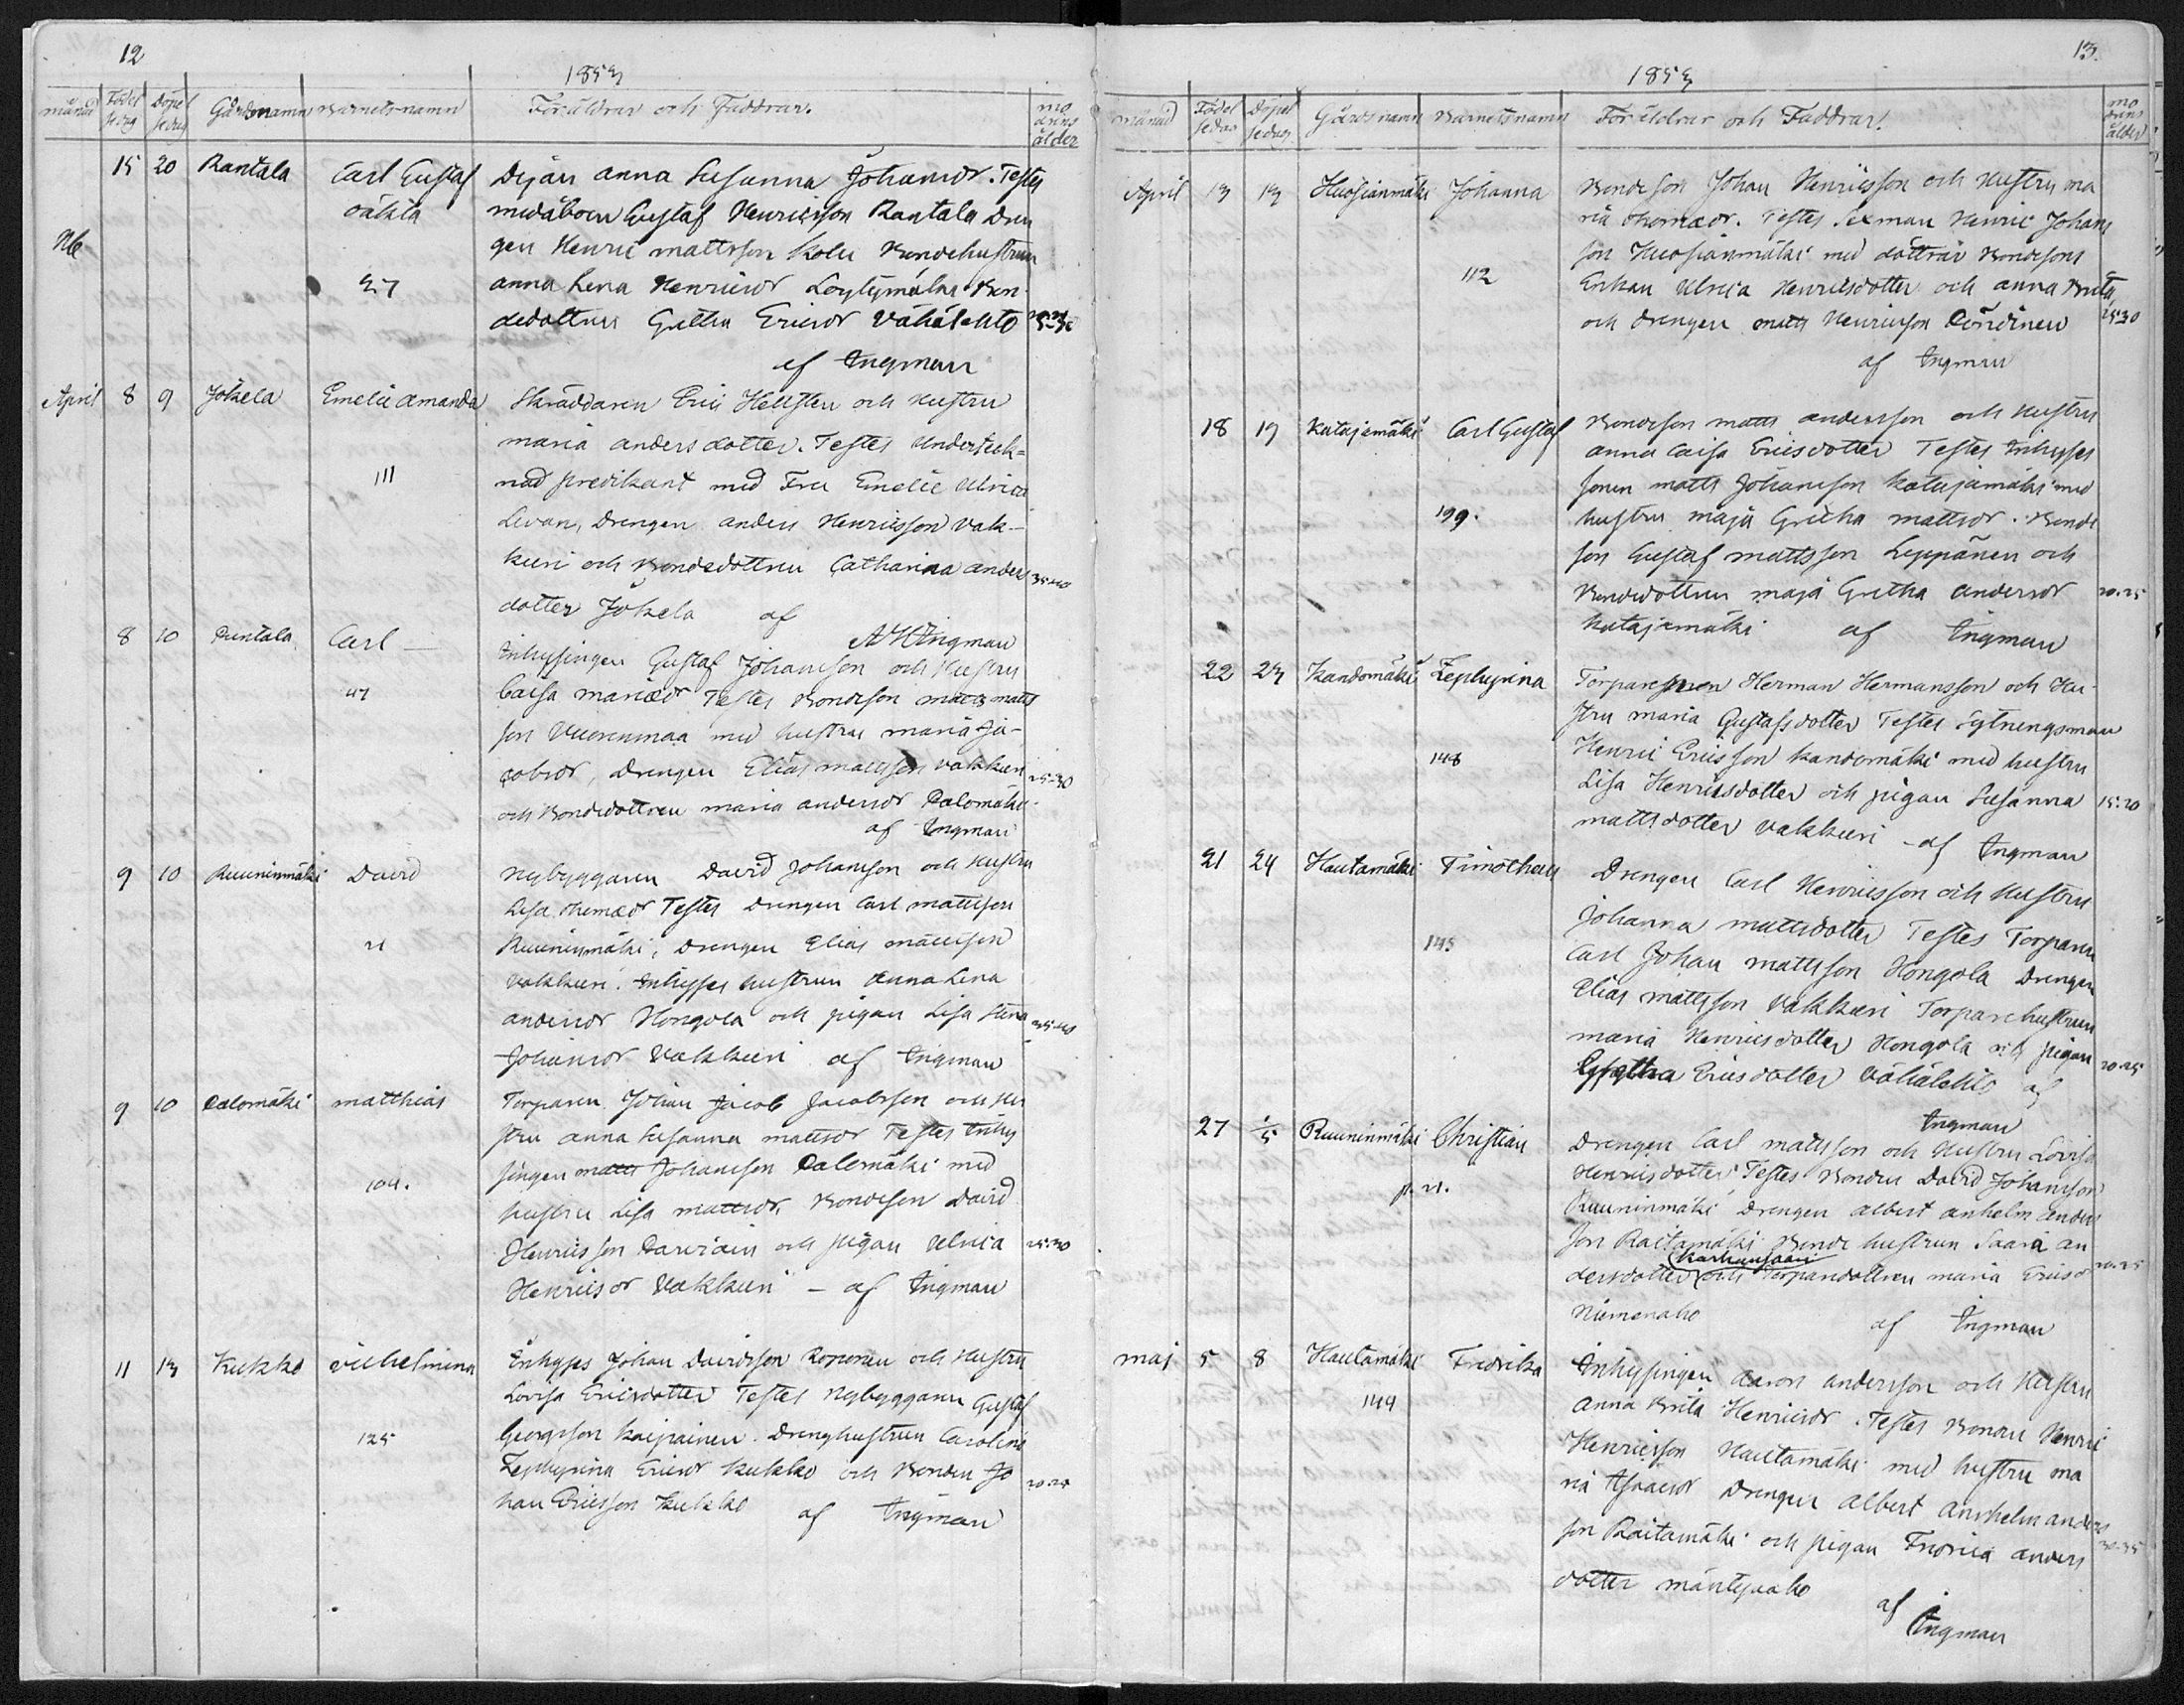 12
1853
månad Födelsedag Döpelsedag Gårdsnamn Barnets-namn Föräldrar och Faddrar. modrens ålder
15 20 Rantala Carl Gustaf Pigan anna Susanna Johansdr. Testes
oäkta medåboen Gustaf Henricsson Rantala Dren
Nb gen Henric mattsson Bondehustrun
27 anna Lena Henricsdr Löytymäki Bon-
dedottren Gretha Ericsdr Vähälehto 25-30
af Ingman
April 8 9 Jokela Emelie amanda Skräddaren Eric Hellsten och hustru
maria andersdotter. Testes Underteck=
111 nad predikant med Fru Emelie Ulrica
Levan, Drengen anders Henricsson Vak-
keri och Bondedottren Catharina anders 35-40
dotter Jokela af
AHIngman
8 10 Puntala Carl — Inhysingen Gustaf Johansson och Hustru
47 Caisa mariædr Testes Bondeson matts matts
son Vuorenmaa med hustru maria Ja-
cobsdr, Drengen Elias mattsson Vakkeri 25-30
och Bondedottren maria andersdr Palomäki-
af Ingman
9 10 Ruuninmäki David Nybyggaren David Johansson och Hustru
Lisa thomædr Testes Drengen Carl mattsson
21 Ruuninmäki, Drengen Elias mattsson
Vakkuri. Inhyses hustrun Anna Lena
andersdr Hongola och pigan Lisa Stina 35-40
Johansdr Vakkuri af Ingman
9 10 Palomäki matthias Torparen Johan Jacob Jacobsson och Hu
stru anna Susanna mattsdr Testes Inhy
singen matts Johansson Palomäki med
104. hustru Lisa mattsdr, Bondeson David
Henricsson Parviain och pigan Ulrica 25-30
Henricsdr Vakkuri — af Ingman
11 13 Kukko Vilhelmina Inhyses Johan Davidsson Roponen och Hustru
Lovisa Ericsdotter Testes Nybyggaren Gustaf
125 Georgsson Kaipainen. Drenghustrun Carolina
Zephyrina Ericsdr Kukko och Bonden Jo
han Ericsson Kukko af Ingman
13.
1853
månad Födelsedag Döpelsedag Gårdsnamn Barnetsnamn Föräldrar och Faddrar. modrens ålder
April 13 13 Huosianmäki Johanna Bondeson Johan Henricsson och Hustru ma
ria thomædr. Testes Sexman Henric Johans
son Huosianmäki med döttrar Bondesons
112 Enkan Ulrica Henricsdotter och anna Brita,
och drengen matts Henricsson Pöndinen 25-30
af Ingman
18 19 Katajamäki Carl Gustaf Bondeson matts andersson och Hustru
anna Caisa Ericsdotter Testes Inhyses
sonen matts Johansson Katajamäki med
199. hustru maja Gretha mattsdr. Bonde
son Gustaf mattsson Leppänen och
Bondedottren maja Gretha andersdr 20-25
Katajamäki af Ingman
22 23 Kandomäki Zephyrina Torparesonen Herman Hermansson och Hu-
stru maria Gustafsdotter Testes Sytningsman
148 Henric Ericsson Kandomäki med hustru
Lisa Henricsdotter och pigan Susanna 15-20
mattsdotter Vakkuri - af Ingman
21 24 Hautamäki Timotheus Drengen Carl Henricsson och Hustru
Johanna mattsdotter Testes Torparen
145 Carl Johan mattsson Hongola Drengen
Elias mattsson Vakkuri Torparehustrun
maria Henricsdotter Hongola och pigan 20-25
Gretha Ericsdotter Vähälehto af
Ingman
27 1/5 Ruuninmäki Christian Drengen Carl mattsson och Hustru Lovisa
p. 21. Henricsdotter Testes Bonden David Johansson
Ruuninmäki Drengen albert anhelm anders
son Raitamäki Bonde hustrun Saara an
Karhunsaari
dersdotter och Torparedottren maria Ericsdr 20-25
Niemenaho af Ingman
maj 5 8 Hautamäki Fredrika Inhysingen Aaron andersson och Hustru
144 Anna Brita Henricsdr. Testes Bonden Henric
Henricsson Hautamäki med hustru ma
ria Isaacsdr Drengen albert anshelm anders
son Raitamäki och pigan Fredrica anders 30-35
dotter mäntyaho
af
Ingman